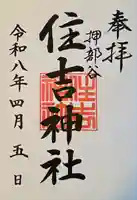 奉拝
押部谷
住吉神社
令和八年四月五日